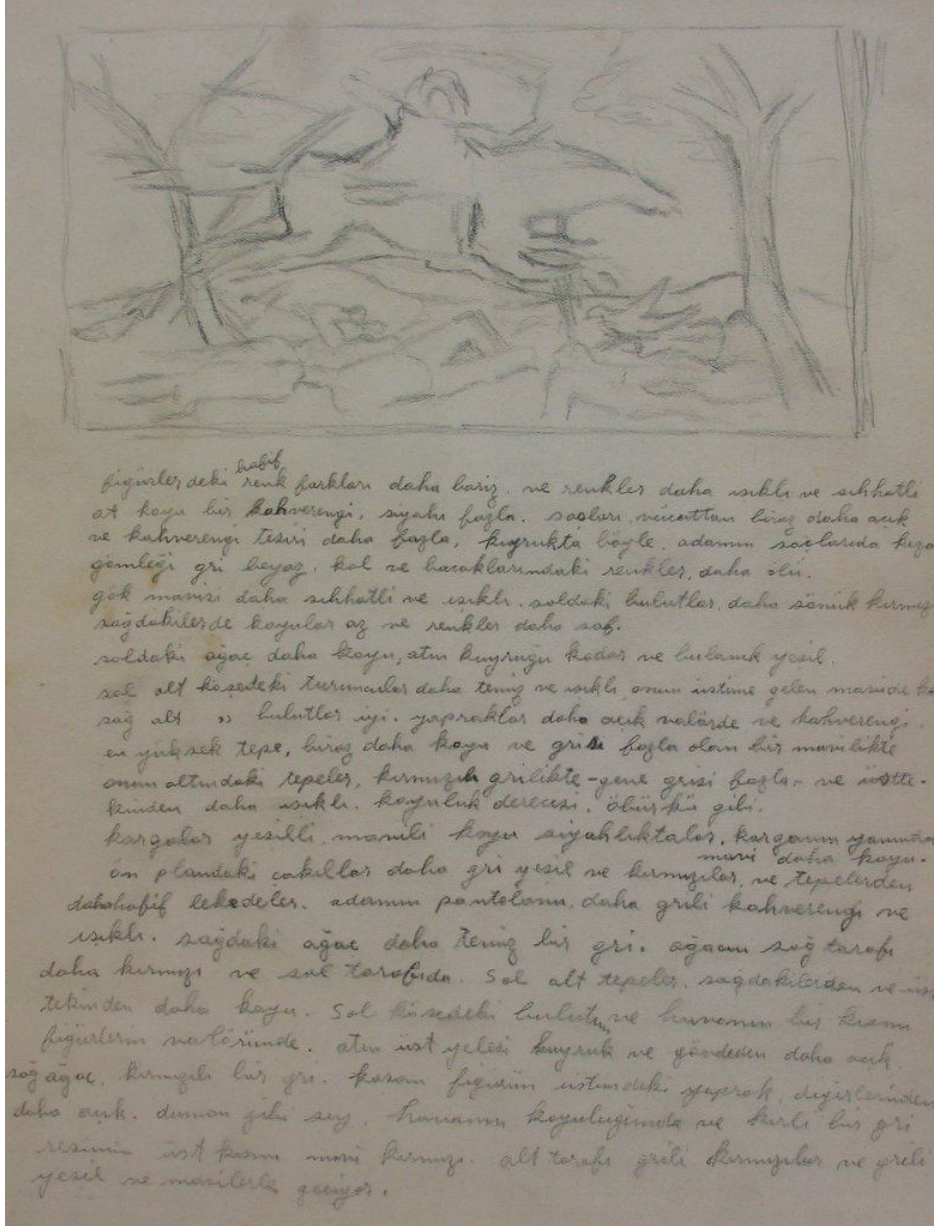 hafif
figürlerdeki renk farkları daha bariz. ve renkler daha ışıklı ve sıhhatli
at koyu bir kahverengi, siyahı fazla. saçları, vücuttan biraz daha açık
ve kahverengi tesiri daha fazla, kuyrukta böyle. adamın saçlarıda keza
gömleği gri beyaz. kol ve bacaklarındaki renkler, daha ölü.
gök mavisi daha sıhhatli ve ışıklı. soldaki bulutlar, daha sönük kırmızı
sağdakilerde koyular az ve renkler daha saf.
soldaki ağaç daha koyu, atın kuyruğu kadar ve bulanık yeşil.
sol alt köşedeki turuncular daha temiz ve ışıklı onun üstüne gelen mavide
sağ alt " bulutlar iyi. yapraklar daha açık valörde ve kahverengi.
en yüksek tepe, biraz daha koyu ve grisi fazla olan bir mavilikte
onun altındaki tepeler, kırmızılı grilikte - gene grisi fazla - ve üstte-
kinden daha ışıklı. koyuluk derecesi, öbürkü gibi.
kargalar yeşilli, mavili koyu siyahlıktalar, karganın
mavi daha koyu.
ön plandaki çakıllar daha gri yeşil ve kırmızılar, ve tepelerden
daha hafif lekedeler. adamın pantolonu, daha grili kahverengi ve
ışıklı. sağdaki ağaç daha temiz bir gri. ağacın sağ tarafı
daha kırmızı ve sol tarafıda. Sol alt tepeler, sağdakilerden ve üst
tekinden daha koyu. Sol köşedeki bulutun ve havanın bir kısmı
figürlerin valöründe. atın üst yelesi kuyruk ve gövdeden daha açık.
sağ ağaç, kırmızılı bir gri. koşan figürün üstündeki yaprak, diğerlerinden
daha açık. duman gibi şey, havanın koyuluğunda ve kirli bir gri
resimin üst kısmı mavi kırmızı. alt tarafı grili kırmızılar ve grili
yeşil ve mavilerle geçiyor.